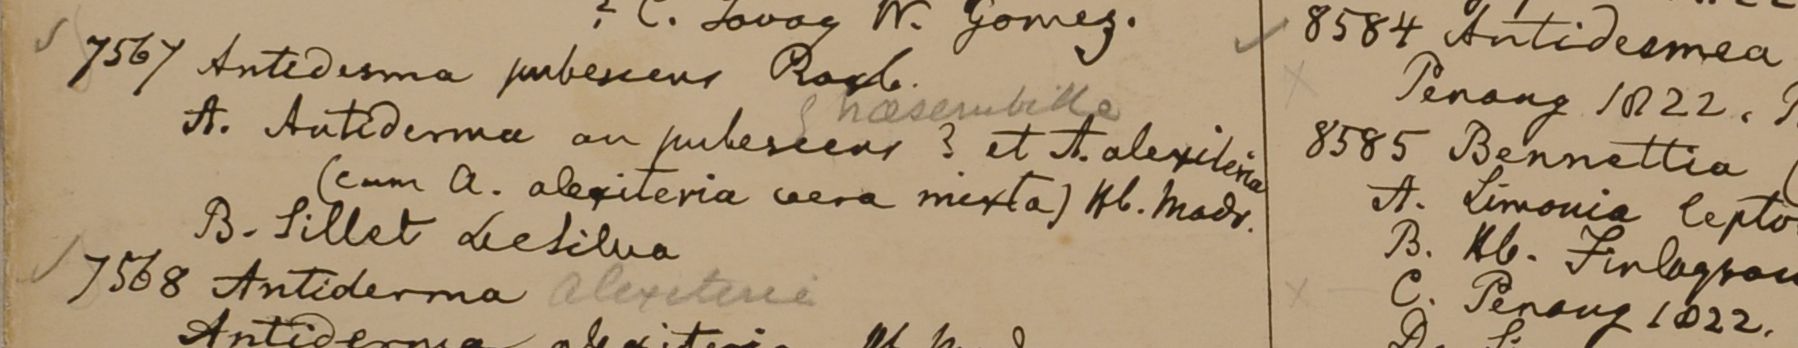 ? C. Tavoy W. Gomez.
7567 Antidesma pubescens Roxb.
Ghaesembilla
A. Antidesma an pubescens? et A. alexiteria
(cum A. alexiteria vera mixta) Hb. Madr.
B. Sillet DeSilva
7568 Antidesma alexiteria
Antidesma alexiteria Hb. Mad
8584 Antidesmea
Penang 1822.
8585 Bennettia (
A. Limonia lepto
B. Hb. Finlayson
C. Penang 1822.
D.